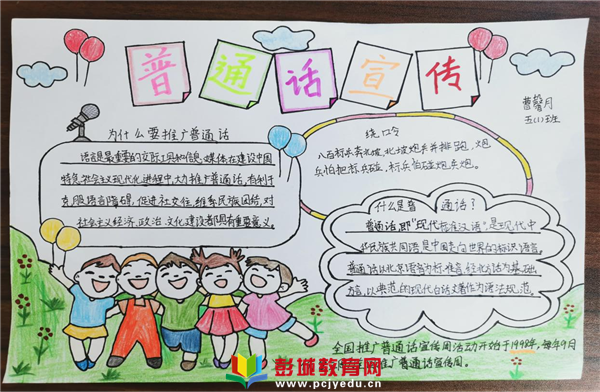 普通话宣传
曹馨月
五(1)班
为什么要推广普通话
语言是最重要的交际工具和信息媒体,在建设中国
特色社会主义现代化进程中,大力推广普通话,有利于
克服语言障碍,促进社会交往,维系民族团结,对
社会主义经济、政治、文化建设都具有重要意义。
绕口令
八百标兵奔北坡,北坡炮兵并排跑,炮
兵怕把标兵碰,标兵怕碰炮兵炮。
什么是普通话?
普通话,即"现代标准汉语"是现代中
华民族共同语,是中国走向世界的标识语言。
普通话以北京语音为标准音,经北方话为基础
方言,以典范的现代白话文著作为语法规范。
全国推广普通话宣传周活动开始于1998年,每年9月
推广普通话宣传周。
彭城教育网
www.pcjyedu.cn